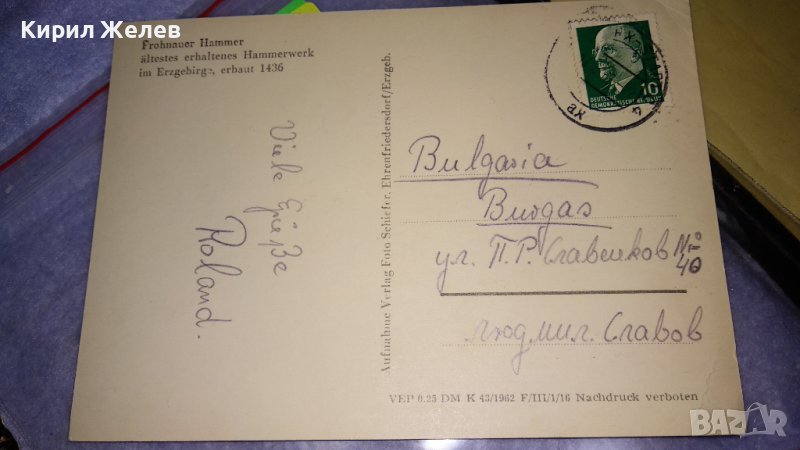 Кирил Желев
Frohnauer Hammer
ältestes erhaltenes Hammerwerk
im Erzgebirge, erbaut 1436
Viele Grüße
Roland.
Aufnahme Verlag Foto Schiefer, Ehrenfriedersdorf/Erzgeb.
10
DEUTSCHE
DEMOKRATISCHE
Bulgaria
Burgas
ул. П.Р. Славейков №
40
Людмил. Славов
VEP 0.25 DM K 43/1962 F/III/1/16 Nachdruck verboten
BAZAR
bg